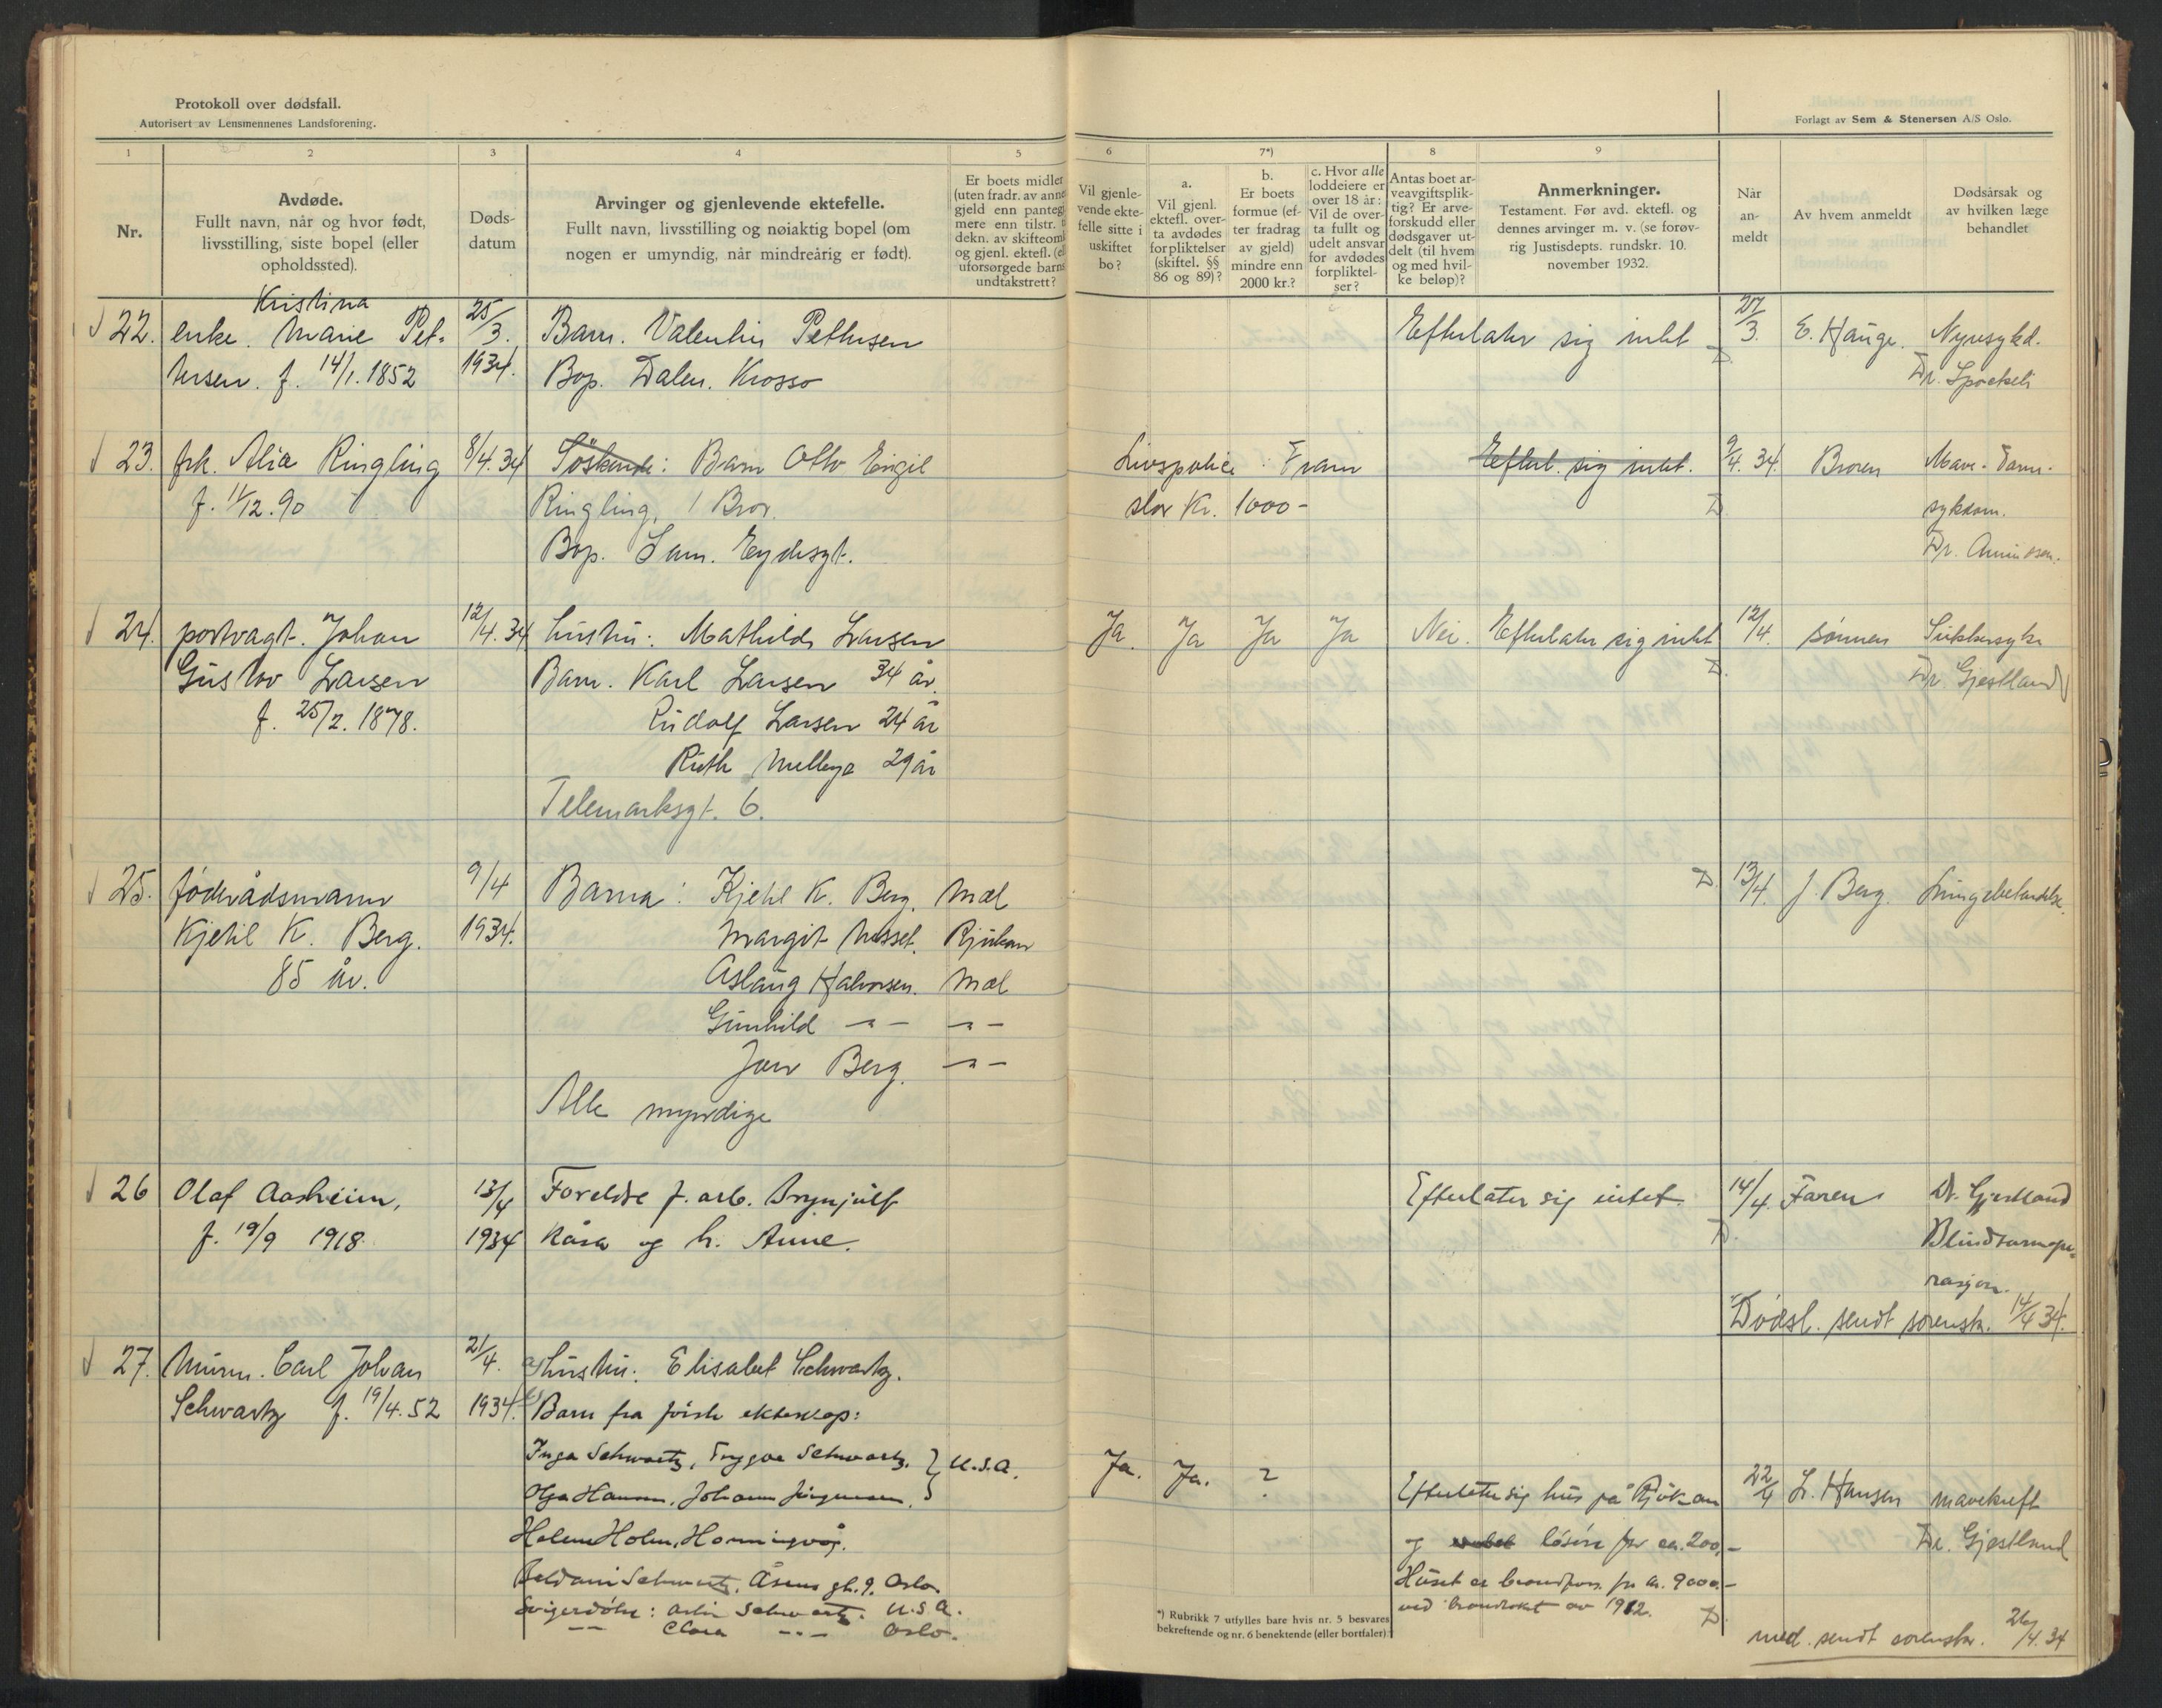 Protokoll over dødsfall.
Autorisert av Lensmennenes Landsforening.
Forlagt av Sem & Stenersen A/S Oslo.
1 2 3 4 5 6 7*) 8 9
Nr.
Avdøde.
Fullt navn, når og hvor født,
livsstilling, siste bopel (eller
opholdssted).
Døds-
datum
Arvinger og gjenlevende ektefelle.
Fullt navn, livsstilling og nøiaktig bopel (om
nogen er umyndig, når mindreårig er født).
Er boets midler
(uten fradr. av anne
gjeld enn panteg
mere enn tilstr.
dekn. av skifteom
og gjenl. ektefl. (el
uforsørgede barns
undtakstrett?
Vil gjenle-
vende ekte-
felle sitte i
uskiftet
bo?
a.
Vil gjenl.
ektefl. over-
ta avdødes
forpliktelser
(skiftel. §§
86 og 89)?
b.
Er boets
formue (ef-
ter fradrag
av gjeld)
mindre enn
2000 kr.?
c. Hvor alle
loddeiere er
over 18 år:
Vil de over-
ta fullt og
udelt ansvar
for avdødes
forpliktel-
ser?
Antas boet ar-
veavgiftsplik-
tig? Er arve-
forskudd eller
dødsgaver ut-
delt (til hvem
og med hvil-
ke beløp)?
Anmerkninger.
Testament. Før avd. ektefl. og
dennes arvinger m. v. (se forøv-
rig Justisdepts. rundskr. 10.
november 1932.
Når
an-
meldt
Av hvem anmeldt
Dødsårsak og
av hvilken læge
behandlet
Kristina
22. enke. Marie Pet- 25/3. Barn. Valentin Pettersen Efterlater sig intet 27/3. E. Hauge. Nyresykd.
tersen. f. 14/1. 1852 1934. Bop. Dalen. Krosso Dr.
23. frk. Alia Ringling 8/4. 34 Söskende: Barn Otto Eigil Livspolice Fram Efterl. sig intet. 9/4. 34. Broren Mave-Tarm-
f. 11/12. 90 Ringling, 1 Bror. stor Kr. 1000- D sykdom.
Bop. Sam. Eydesgt. Dr. Amundsen.
24. portvagt. Johan 12/4. 34 hustru: Mathilde Larsen Ja. Ja Ja Ja Nei. Efterlater sig intet 12/4. sønnen Sukkersyke
Gustav Larsen Barn. Karl Larsen 34 år. D. Dr. Gjestland
f. 25/2. 1878. Rudolf Larsen 24 år
Ruth Mellbye 29 år
Telemarksgt. 6.
25. föderådsmann 9/4 Barna: Kjetil K. Berg. Mæl D. 13/4. J. Berg. Lungebetendelse.
Kjetil K. Berg. 1934. Margit Nisset. Rjukan
85 år. Aslaug Halvorsen. Mæl
Gunhild -"- -"-
Jon Berg. -"-
Alle myndige
26 Olaf Aasheim, 13/4 Foreldre f. arb. Brynjulf Efterlater sig intet. 14/4. Faren Dr. Gjestland
f. 19/9 1918. 1934 Kåsa og h. Anne. D. Blindtarmope-
rasjon.
Dødsf. sendt sorensk. 14/4 34.
27. Murm. Carl Johan 21/4. a) hustru: Elisabet Schwartz.
Schwartz f. 19/4. 52 1934. b) Barn fra første ekteskap:
Inga Schwartz, Trygve Schwartz. } U.S.A. Ja. Ja. ?
Olga Hansen, Johanne Jörgensen. Efterlater sig hus på Rjukan 22/4 L. Hansen mavekreft
Helene Holm, Honningsvåg. og løsøre for ca. 200,- Dr. Gjestland
Schwartz, Åsens gt. 9. Oslo. Huset er brandfors. for kr. 9000.-
Svigerdøtre: Schwartz. U.S.A. ved brandtakst av 1912. D.
-"- Clara -"- Oslo.
*) Rubrikk 7 utfylles bare hvis nr. 5 besvares
bekreftende og nr. 6 benektende (eller bortfaler).
med. sendt sorenskr. 26/4. 34